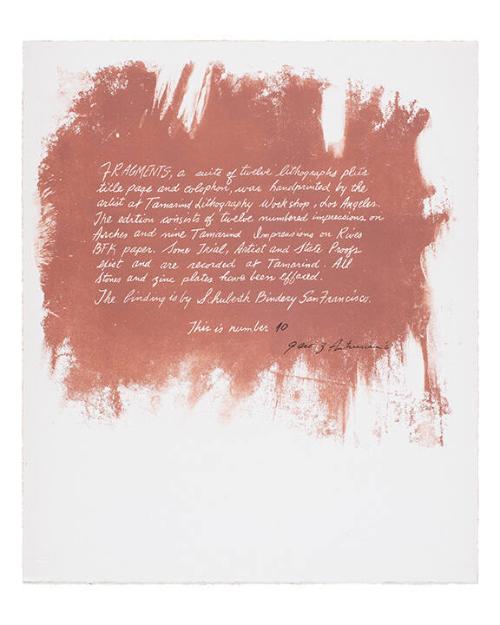 FRAGMENTS, a suite of twelve lithographs plus
title page and colophon, was handprinted by the
artist at Tamarind Lithography Workshop, Los Angeles.
The edition consists of twelve numbered impressions on
Arches and nine Tamarind Impressions on Rives
BFK paper. Some Trial, Artist and State Proofs
exist and are recorded at Tamarind. All
Stones and zinc plates have been effaced.
The binding is by Schuberth Bindery San Francisco.
This is number 10